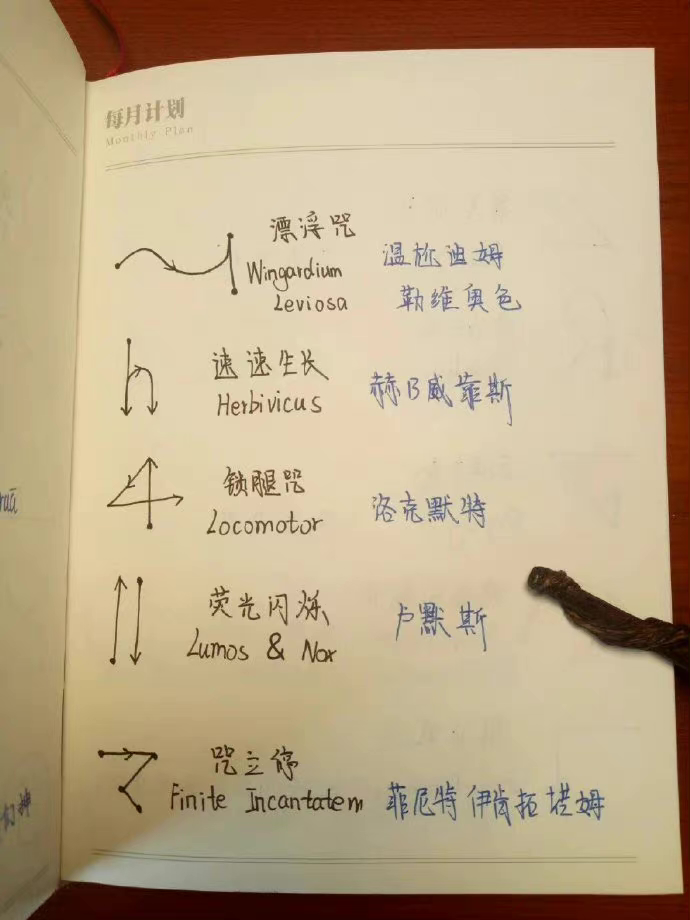 每月计划
Monthly Plan
漂浮咒
Wingardium
Leviosa
温尬迪姆
勒维奥色
速速生长
Herbivicus
赫B威菲斯
锁腿咒
Locomotor
洛克默特
荧光闪烁
Lumos & Nox
卢默斯
咒立停
Finite Incantatem
菲尼特 伊肯拓塔姆